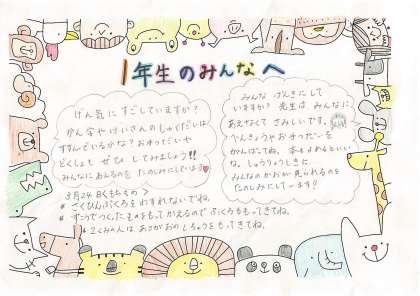 1年生のみんなへ
げん気にすごしていますか？
かん字やけいさんのしゅくだいは
すすんでいるかな？おてつだいや
どくしょも ぜひ してみましょう!!
みんなにあえるのを たのしみにしています
みんな げんきにして
いますか？先生は みんなに
あえなくて さみしいです。
べんきょうやおてつだいを
がんばってね。本もよめるといい
な。しょうりょうしきに
みんなのかおが見られるのを
たのしみにしています！
3月24日くもちもの＞
* さくひんぶくろをわすれないでね。
* ずこうでつくったものをもってかえるので ふくろをもってきてね。
* 2くみの人は、あさがおの しちゅうをもってきてね。